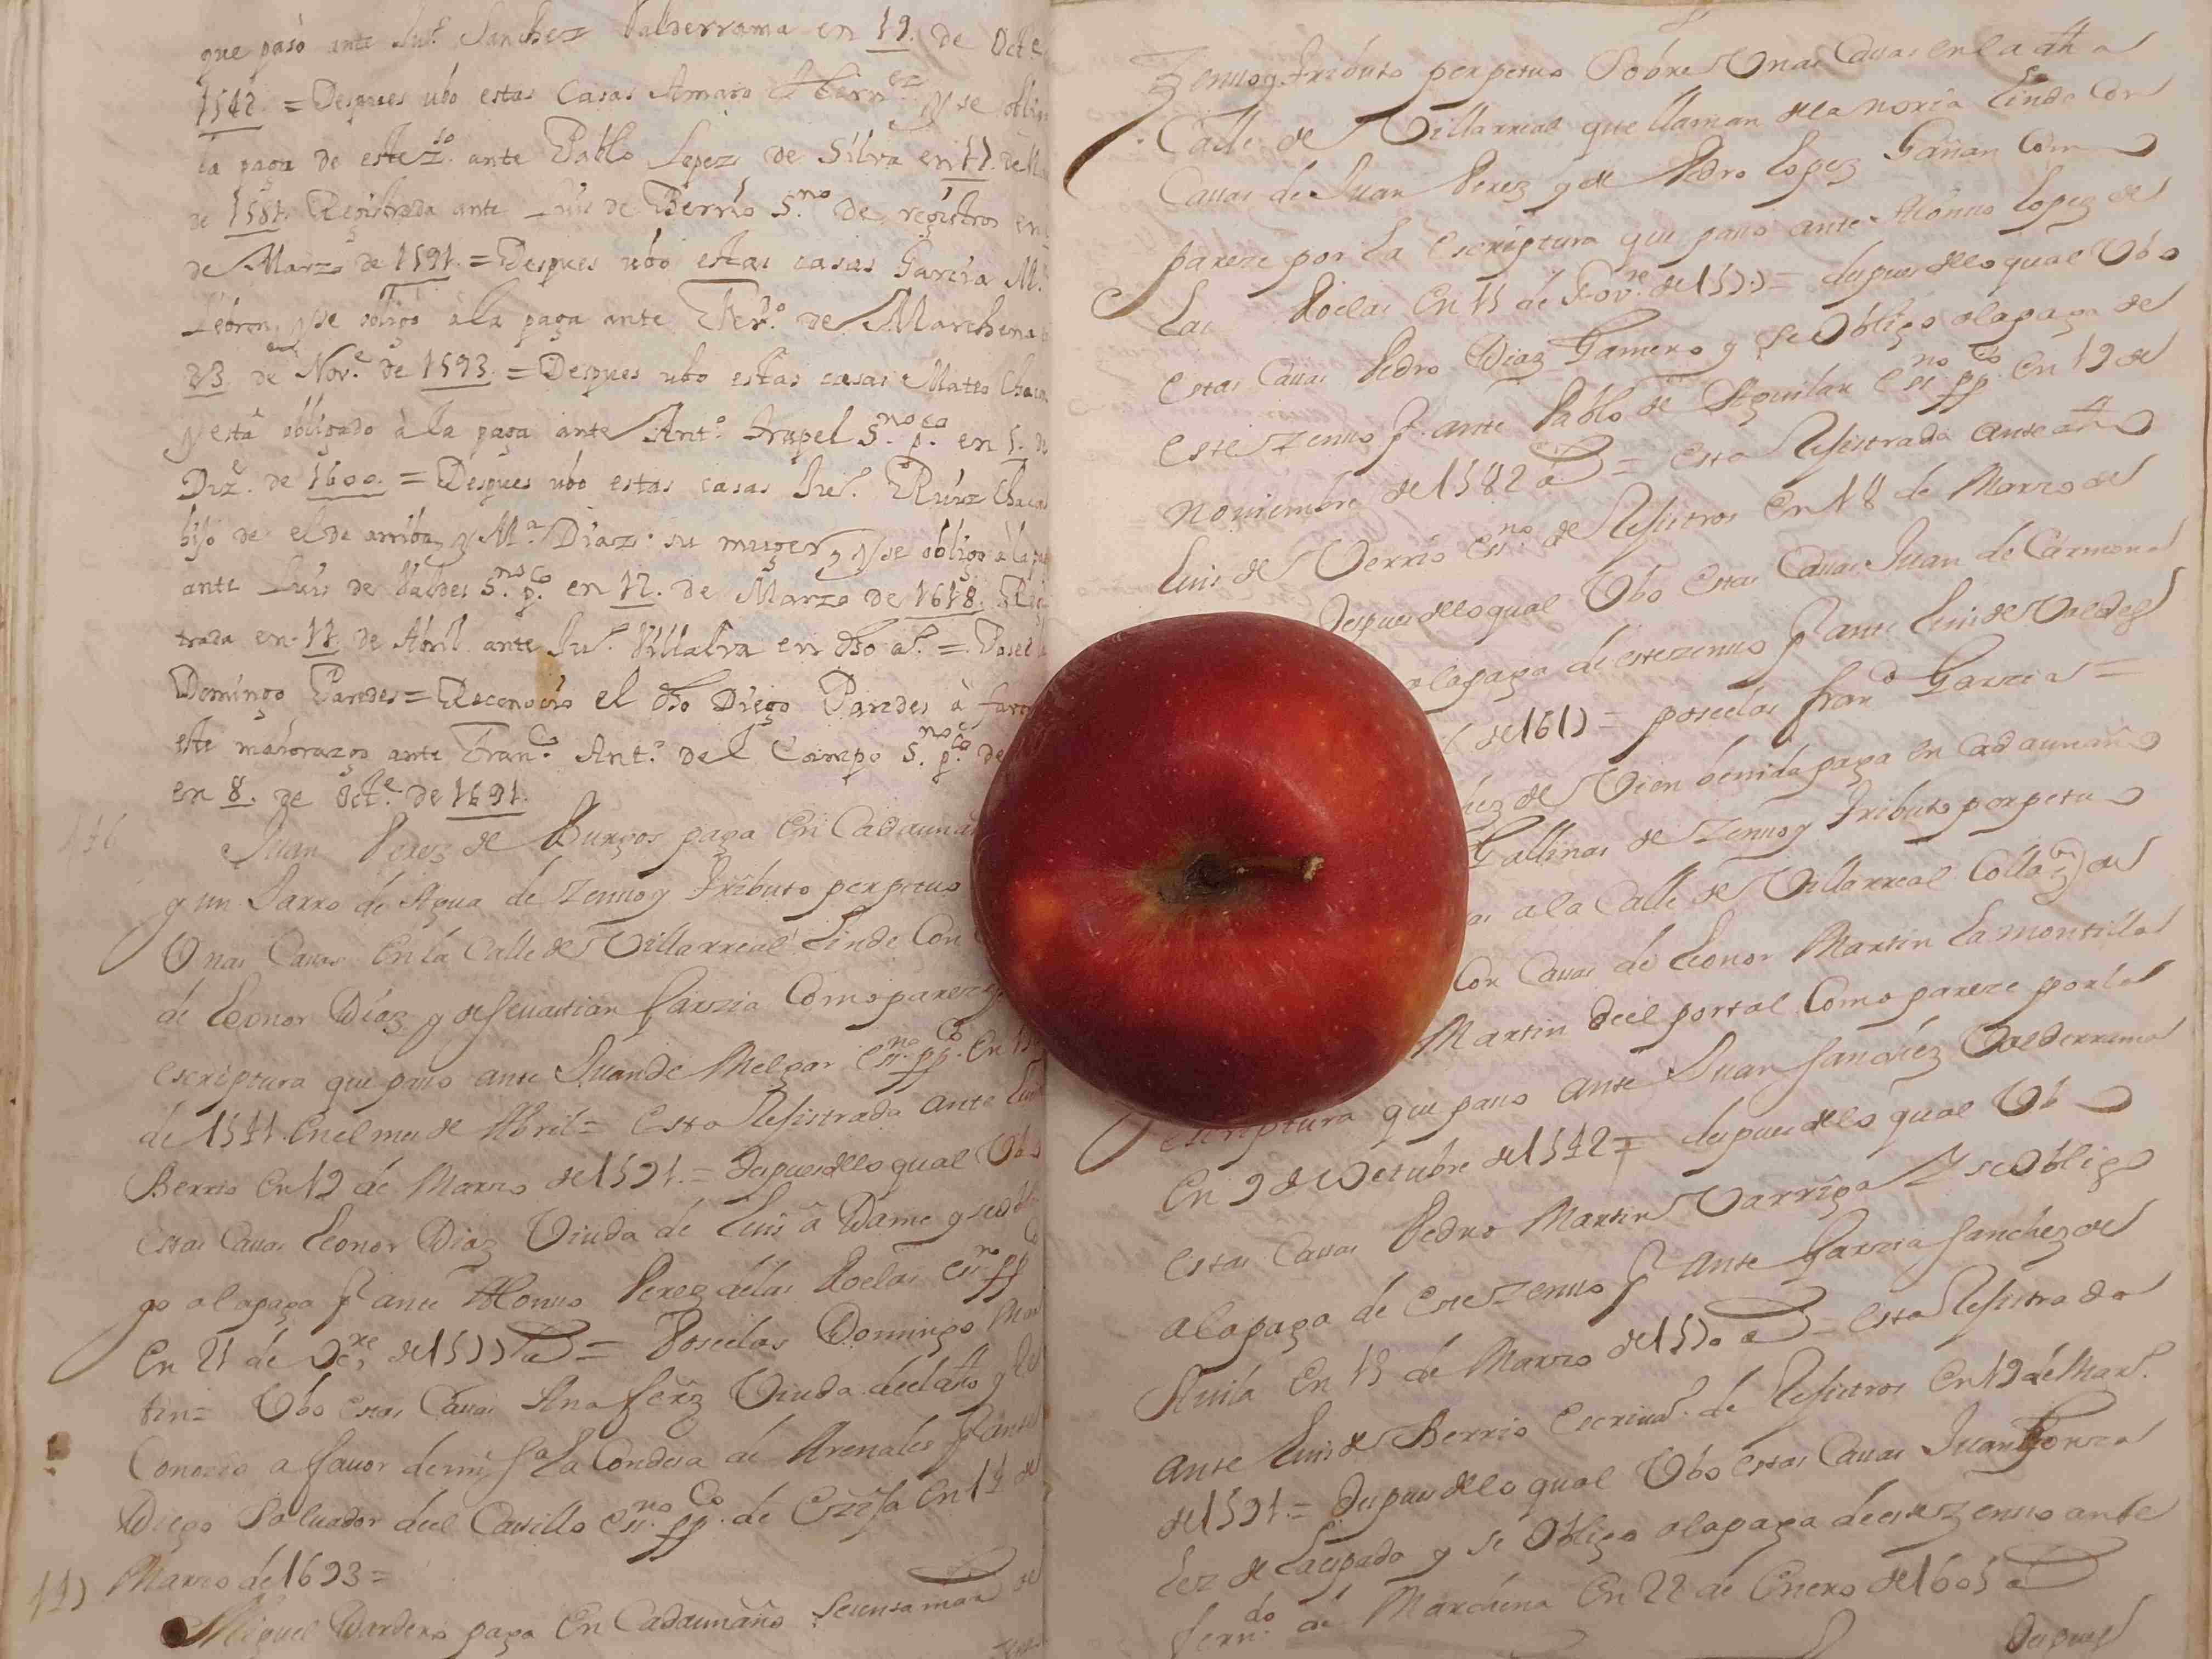 que pasó ante Juº. Sanchez Valderrama en 19. de Octe
1542. = Despues ubo estas Casas Amaro Hernez. y se obli
la paga de este zº. ante Pablo Lopez de Silva en 17. de
de 1581. Registrada ante Luis de Berrio S.no de registros en
de Marzo de 1591. = Despues ubo estas casas Garcia M.
Lebron, y se obligó à la paga ante Ferº. de Marchena
23. de Nov.e de 1593. = Despues ubo estas casas Matheo Chaco
y está obligado à la paga ante Ant.º Trapel S.no p.co en 1. de
Diz.e de 1600. = Despues ubo estas casas Juº. Ruiz Chacon
hijo de el de arriba, y M.a Diaz su muger, y se obligó à la pa
ante Luis de Valdes S.no p.co en 12. de Marzo de 1618. Regis
trada en 11. de Abril ante Juº. Villalva en dho aº. = Posee la
Domingo Paredes = Reconocio el dho Diego Paredes à favor
este maiorazgo ante Fran.co Ant.º del Campo S.no p.co de
en 8. de Oct.e de 1691.
116
Juan Perez de Burgos paga en Cada un añ
y un Jarro de Agua de Zensso y tributo perpetuo
Unas Cassas En la Calle de Villarreal Linde Con
de Leonor Diaz y de Sevastian Garzia Como pareze
escriptura que passo ante Juan de Melgar ess.no pp.co en
de 1541. en el mes de Abril = esta Rejistrada ante Luis
Berrio en 19 de Marzo de 1591. = Despues de lo qual Ubo
estas Cassas Leonor Diaz Viuda de Luis Adame y se obli
go a la paga p.r ante Alonsso Perez de las Roelas ess.no pp.co
en 21 de Oc.re de 1577 a = Posee las Domingo Mar
tin = Ubo estas Cassas Ana ferrz Viuda del dho y Re
Conozio a favor de mi Sa. la Condesa de Arenales p.r ante
Diego Salvador del Castillo ess.no pp.co de Ezija en 14 de
Marzo de 1693 =
117
Miguel Dardero paga En Cada un año Sesenta mrs de
Zensso y tributo perpetuo Sobre Unas Cassas en la dha
Calle de Villarreal que llaman de la noria Linde Con
Cassas de Juan Perez y de Pedro Lopez Gañan Como
pareze por la escriptura que passo ante Alonsso Lopez de
Las Roelas En 11 de Nov.re de 1577 = despues de lo qual Ubo
estas Cassas Pedro Diaz Gamero y se obligo a la paga de
este Zensso p.r ante Pablo de Aguilar ess.no pp.co en 19 de
noviembre de 1582 a = esta Rejistrada ante
Luis de Verrio ess.no de Rejistros en 18 de Marzo de
Despues de lo qual Ubo estas Cassas Juan de Carmona
a la paga de este zensso p.r ante Luis de Valdes
de 1617 = posee las fran.co Garzia =
de Vien benida paga en Cada un año
Gallinas de Zensso y tributo perpetuo
a la Calle de Villarreal Collaz.on de
Con Cassas de Leonor Martin la montilla
Martin del portal Como pareze por la
escriptura que passo ante Juan Sanchez Valderrama
En 9 de Octubre de 1542 = despues de lo qual Ubo
estas Cassas Pedro Martin Varriga Y se obligo
a la paga de este Zensso p.r ante Garzia Sanchez de
Avila en 15 de Marzo de 1570 a = esta Rejistrada
ante Luis de Berrio Escrivn. de Rejistros en 19 de Marz.
de 1591. = Despues de lo qual Ubo estas Cassas Juan Gonza
lez de Laespada y se obligo a la paga de este zensso ante
fern.do de Marchena En 22 de Enero de 1605 a
Despues